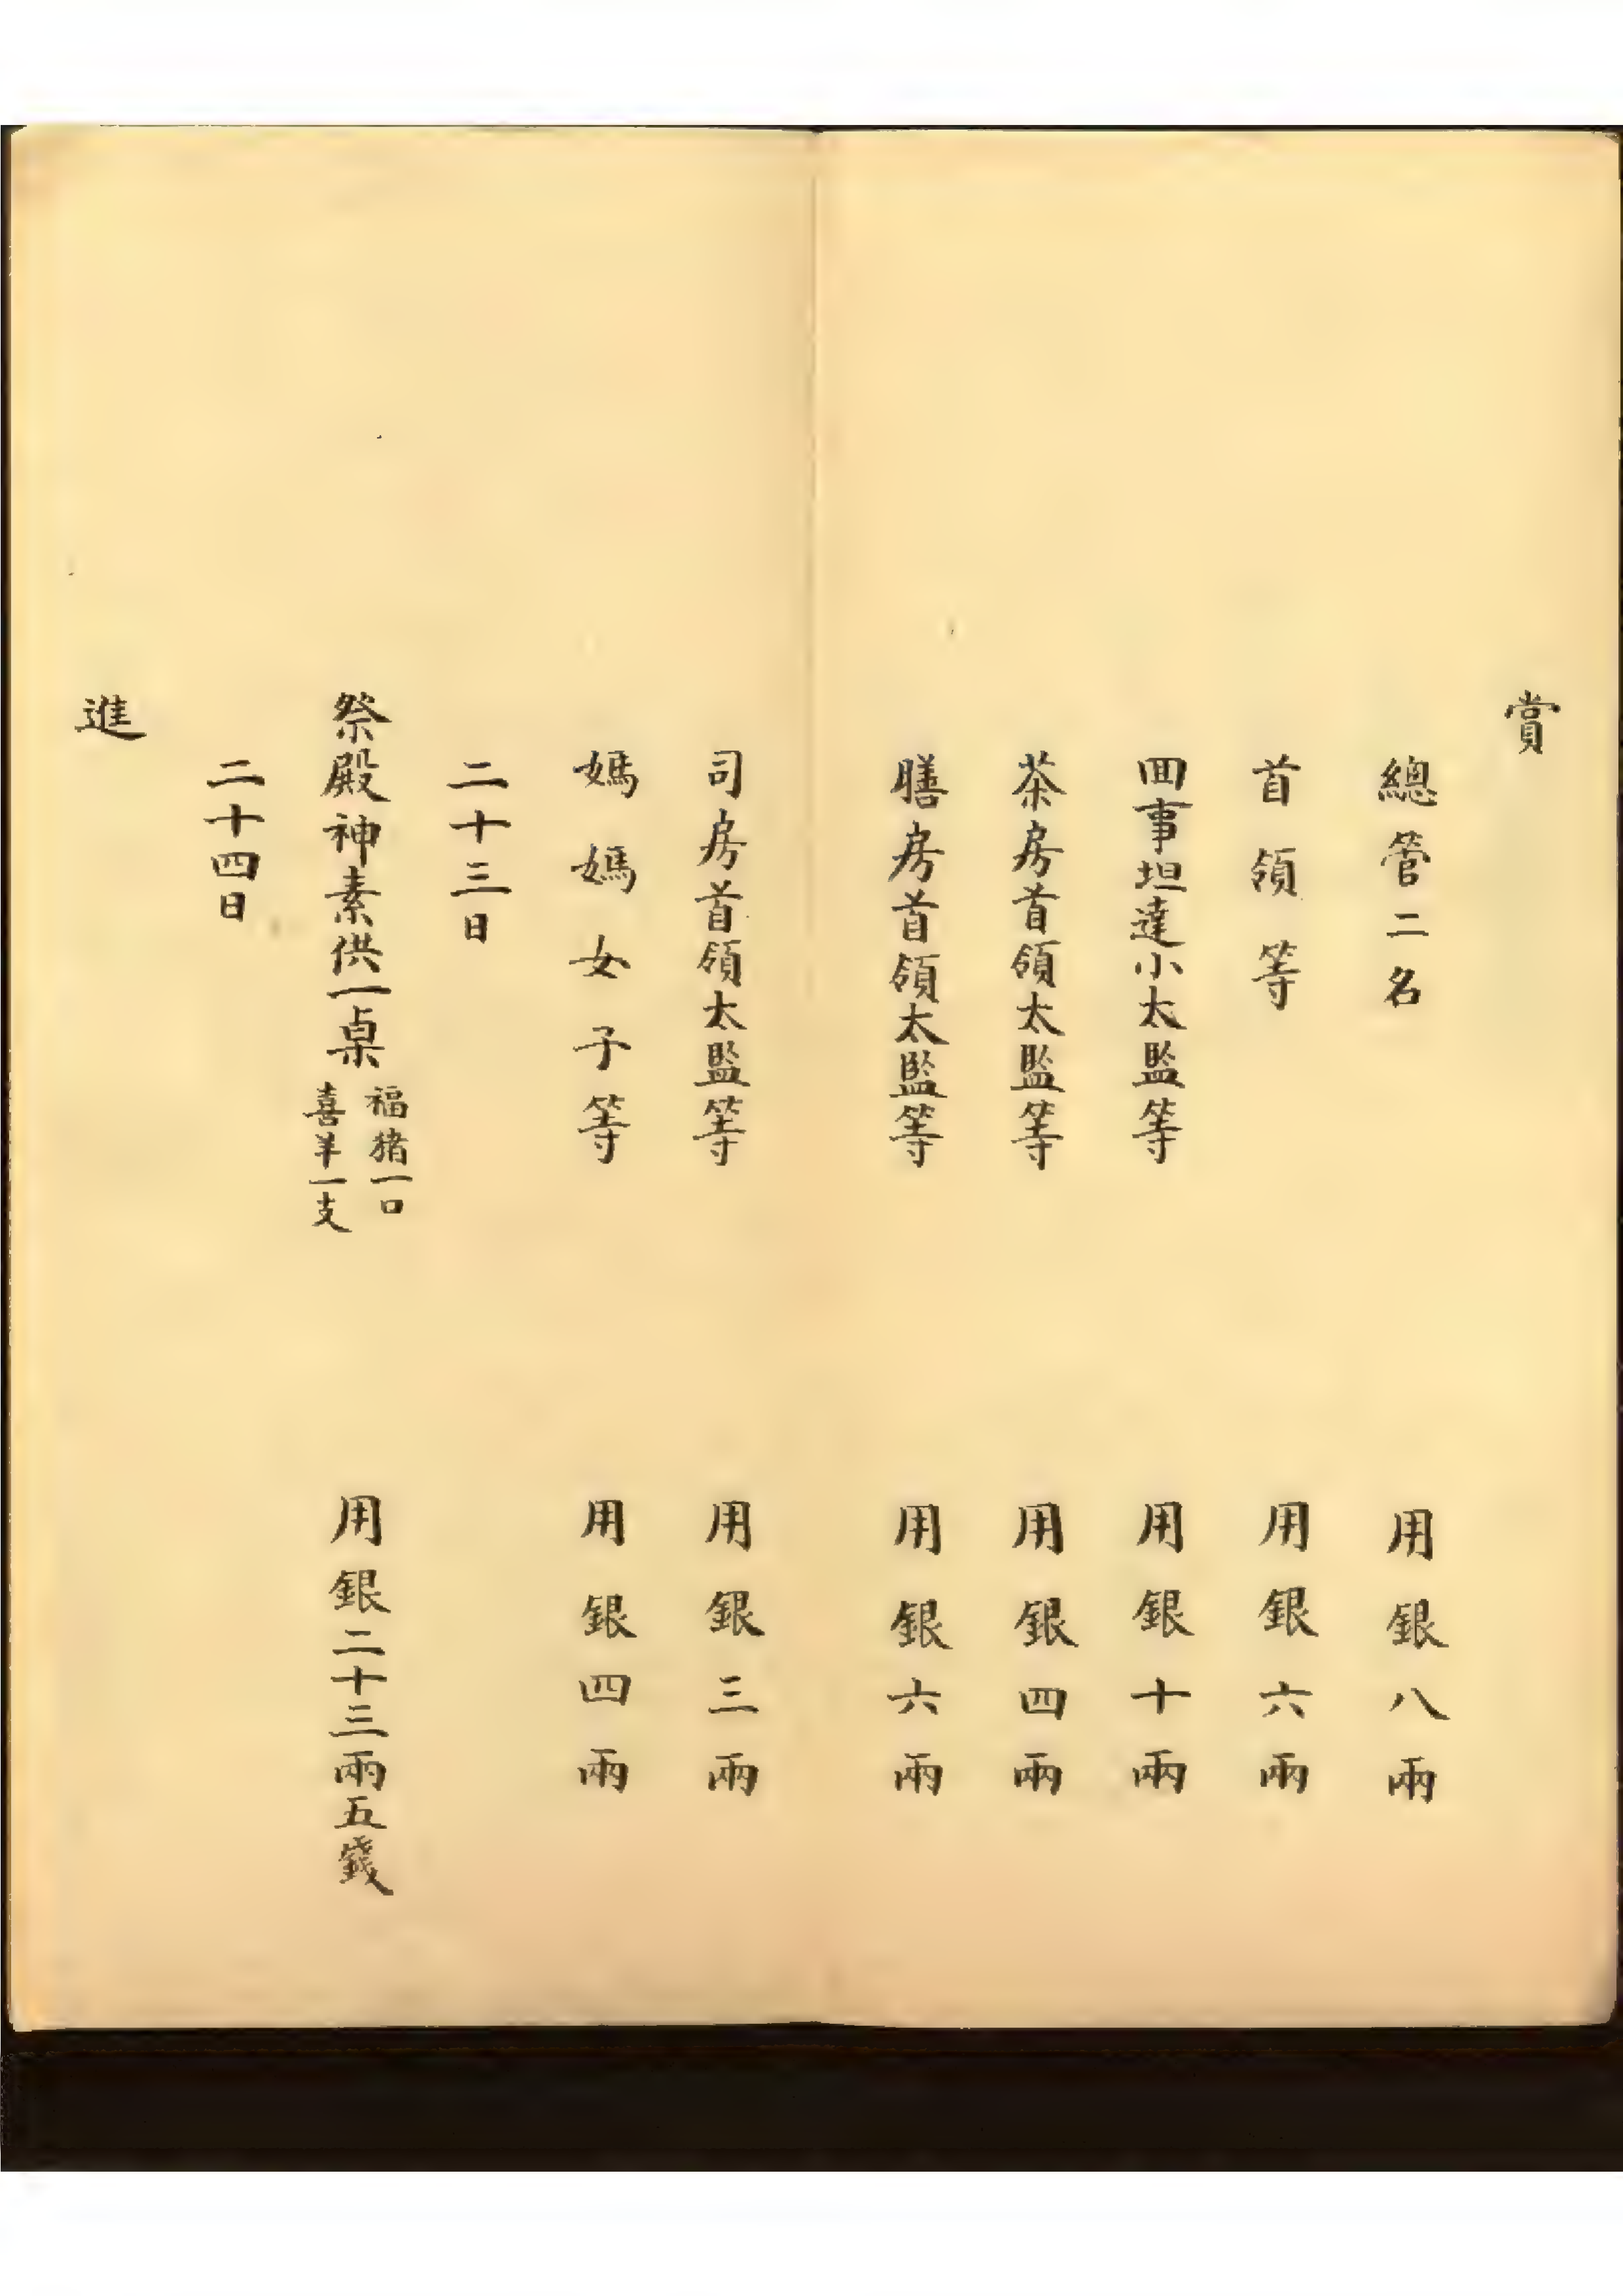 賞
總管二名　用銀八兩
首領等　用銀六兩
回事坦達小太監等　用銀十兩
茶房首領太監等　用銀四兩
膳房首領太監等　用銀六兩
司房首領太監等　用銀三兩
媽媽女子等　用銀四兩
二十三日
祭殿神素供一桌　福猪一口　喜羊一支　用銀二十三兩五錢
二十四日
進